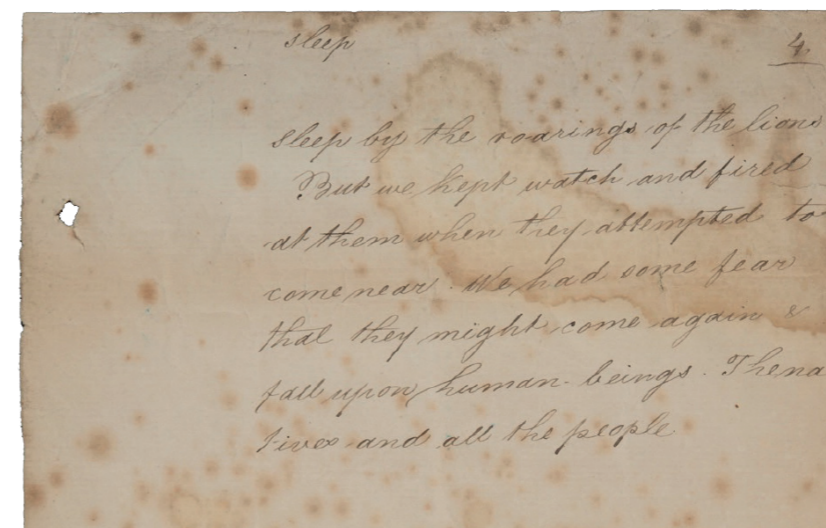 sleep
4.
sleep by the roarings of the lions
But we kept watch and fired
at them when they attempted to
come near. We had some fear
that they might come again &
fall upon human beings. The na
tives and all the people